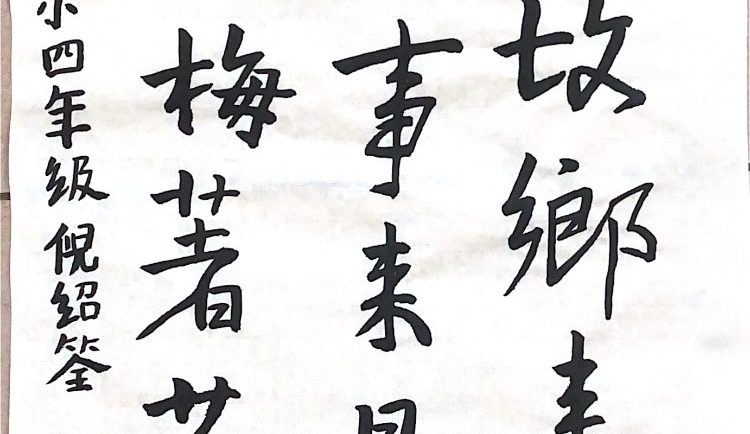 故鄉
事来
梅著
小四年級倪紹筌